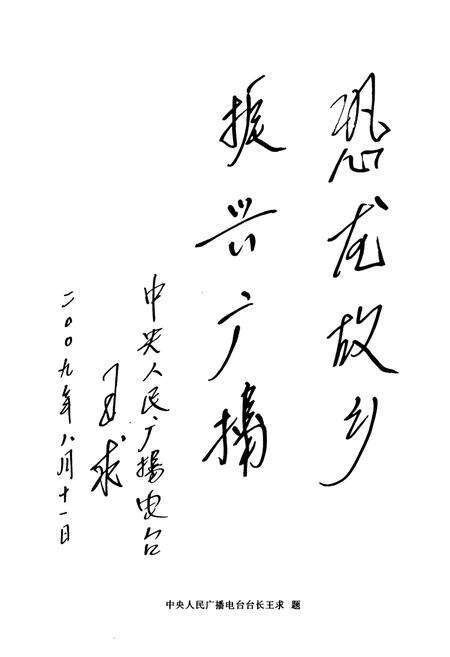 恐龙故乡
振兴广播
中央人民广播电台
王求
二〇〇九年八月十一日
中央人民广播电台台长王求 题